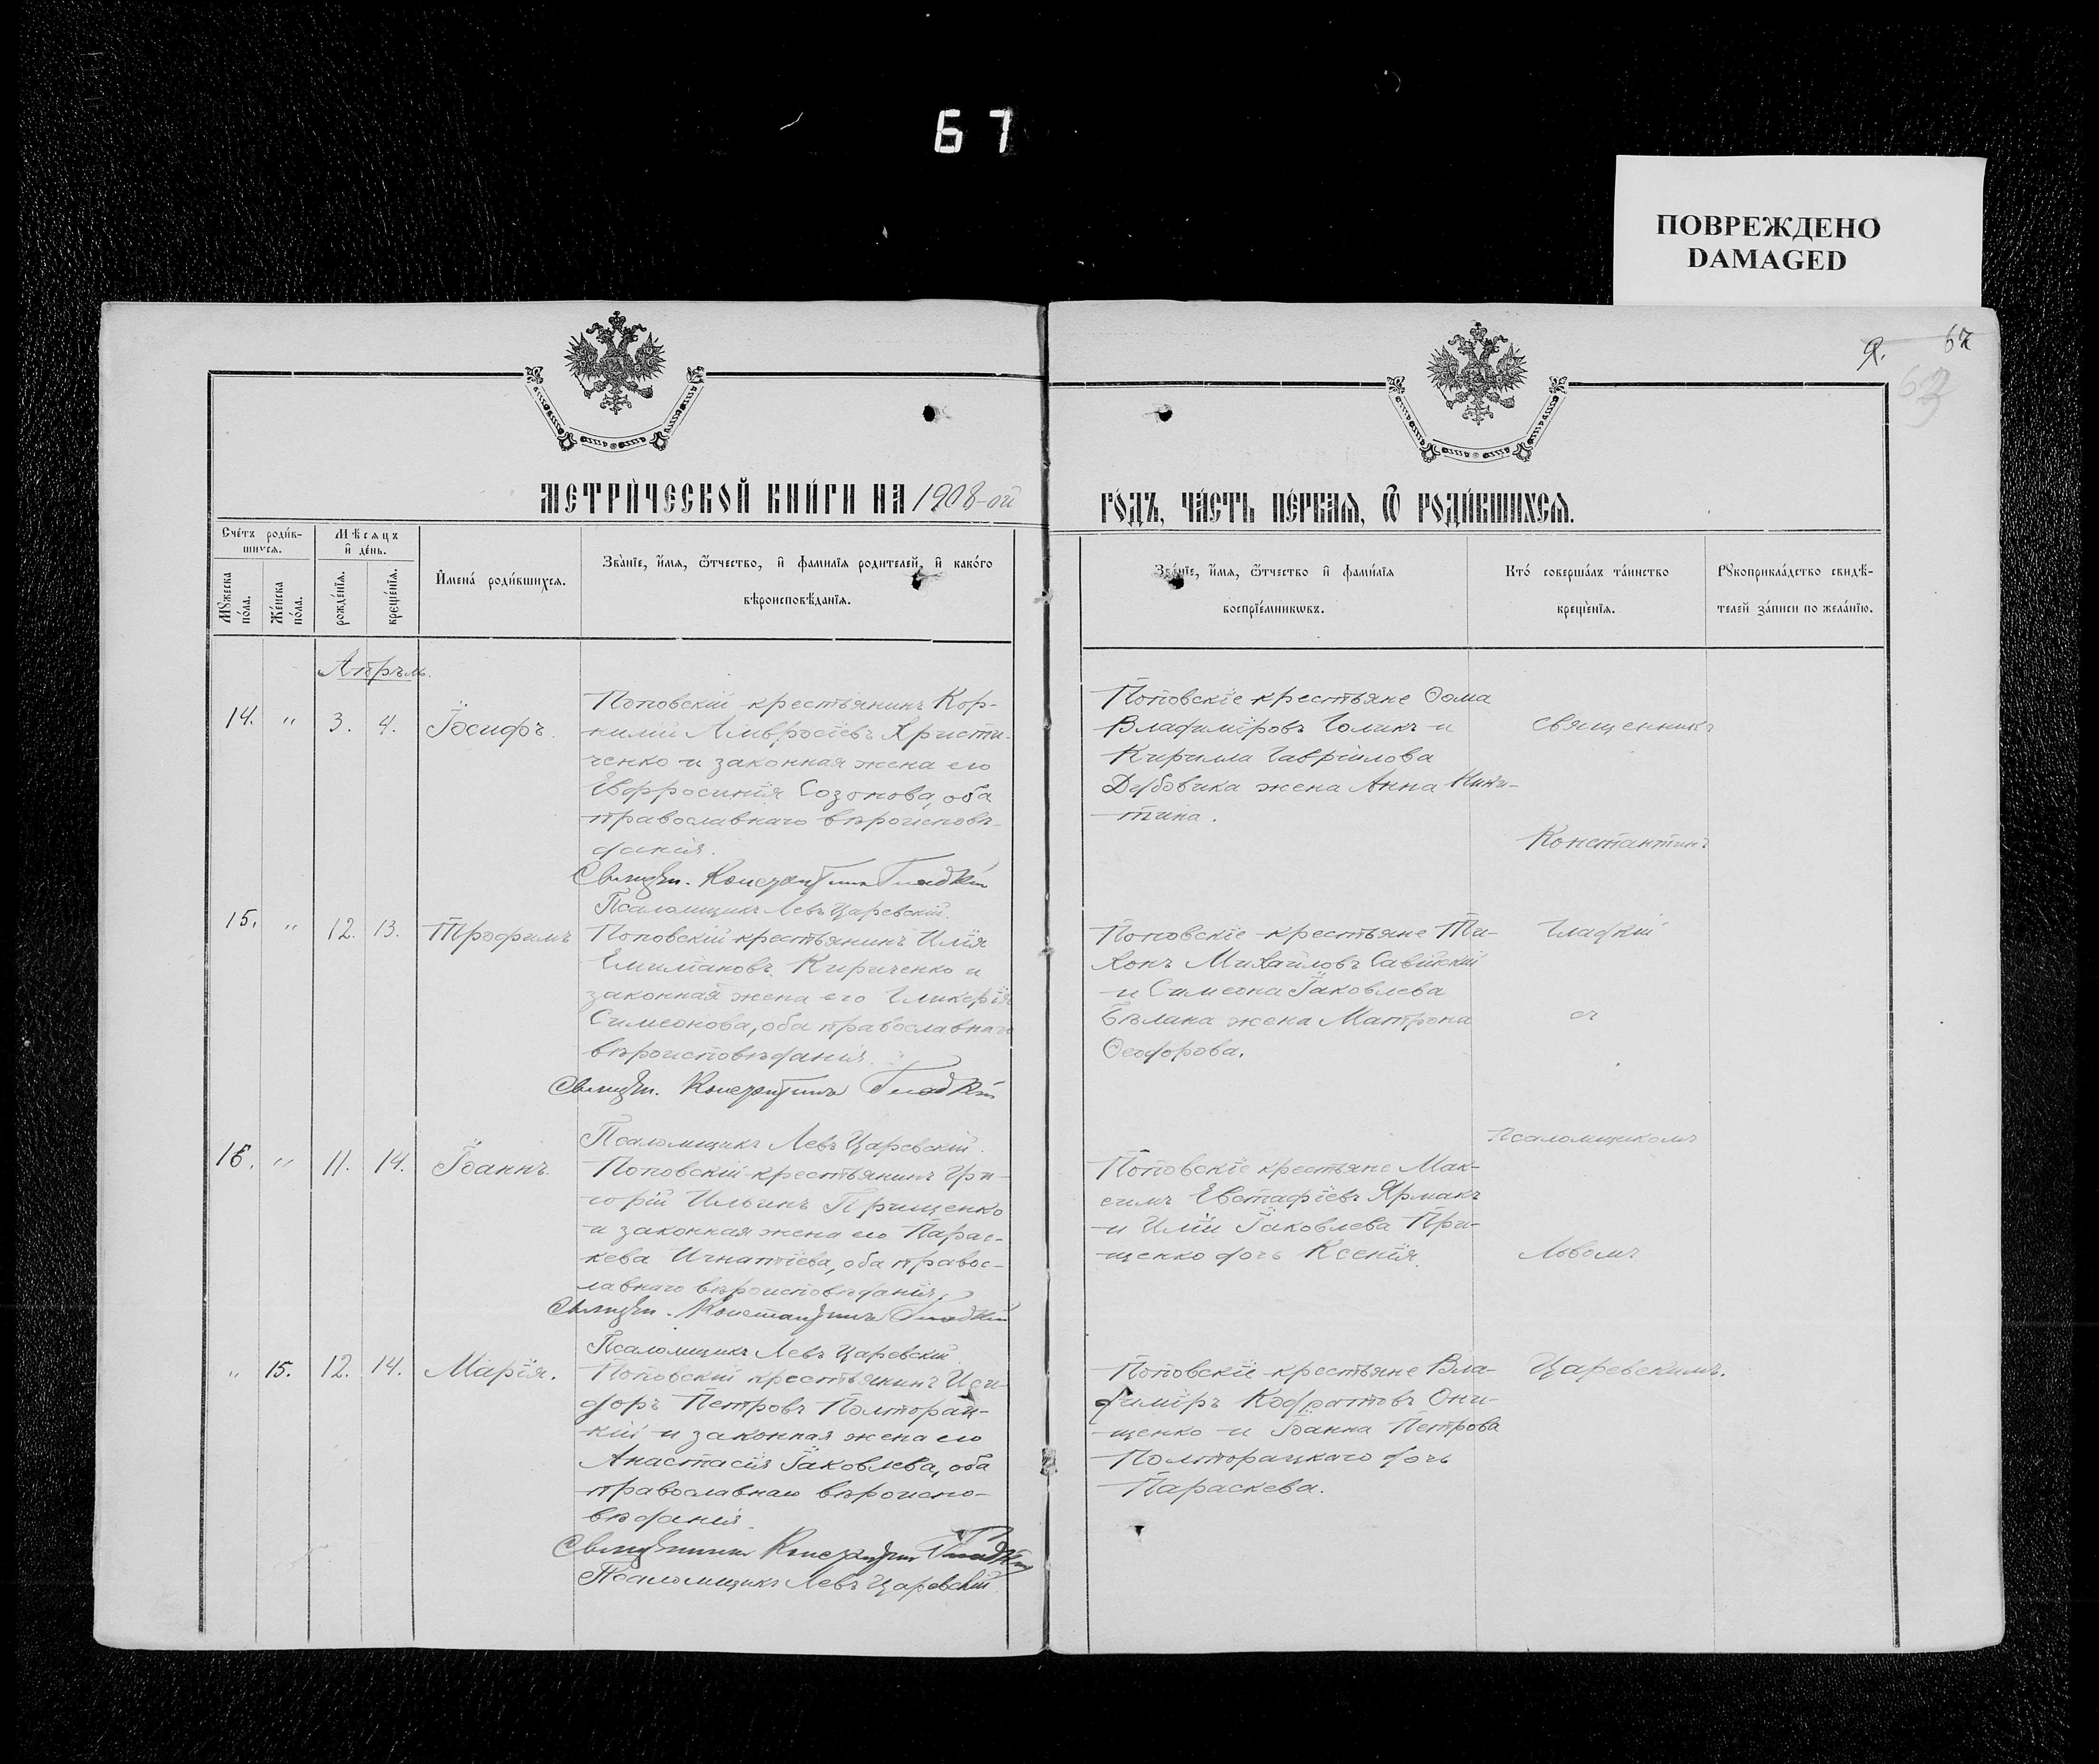 67
ПОВРЕЖДЕНО
DAMAGED
9. 67
МЕТРИ́ЧЕСКОЙ КНИ́ГИ НА 1908-ой
ГО́ДЪ, ЧА́СТЬ ПЕ́РВАЯ, Ѽ РОДИ́ВШИХСЯ.
Сче́тъ роди́в-
шихся.
Мѣсяцъ
и҆ де́нь.
Мꙋжеска
по́ла.
Же́нска
по́ла.
рожде́нїя.
креще́нїя.
И҆мена̀ роди́вшихся.
Зва̀нїе, и҆́мя, ѻ҆́тчество, и҆ фами́лїя роди́телей, и҆ како́го
вѣроисповѣ́данїя.
Зва́нїе, и҆́мя, ѻ҆́тчество и҆ фами́лїя
воспрїе́мникѡвъ.
Кто̀ соверша́лъ та́инство
креще́нїя.
Рꙋкоприкла́дство свидѣ́-
телей за́писи по жела́нїю.
Апрѣль.
14. " 3. 4. Іосифъ.
Поповскій крестьянинъ Кор-
нилій Амвросіевъ Христи-
ченко и законная жена его
Евфросинія Созонова, оба
православнаго вѣроисповѣ-
данія.
Священ. Константинъ Гладкій
Псаломщикъ Левъ Царевскій.
Поповскіе крестьяне Ѳома
Владиміровъ Голикъ и
Кирилла Гавріилова
Дубовика жена Анна Ники-
тина.
Священникъ
Константинъ
15. " 12. 13. Трофимъ
Поповскій крестьянинъ Илія
Емиліановъ Кириченко и
законная жена его Гликерія
Симеонова, оба православнаго
вѣроисповѣданія.
Священ. Константинъ Гладкій
Псаломщикъ Левъ Царевскій.
Поповскіе крестьяне Ти-
хонъ Михайловъ Савійскій
и Симеона Іаковлева
Бѣлана жена Матрона
Ѳеодорова.
Гладкій
съ
Псаломщикомъ
16. " 11. 14. Іоаннъ.
Поповскій крестьянинъ Гри-
горій Ильинъ Прищенко
и законная жена его Парас-
кева Игнатіева, оба правос-
лавнаго вѣроисповѣданія.
Священ. Константинъ Гладкій
Псаломщикъ Левъ Царевскій
Поповскіе крестьяне Мак-
симъ Евстафіевъ Ярмакъ
и Иліи Іаковлева При-
щенко дочь Ксенія.
Львомъ
" 15. 12. 14. Марія.
Поповскій крестьянинъ Иси-
доръ Петровъ Полторац-
кій и законная жена его
Анастасія Іаковлева, оба
православнаго вѣроиспо-
вѣданія.
Священникъ Константинъ Гладкій
Псаломщикъ Левъ Царевскій
Поповскіе крестьяне Вла-
диміръ Кодратовъ Они-
щенко и Іоанна Петрова
Полторацкаго дочь
Параскева.
Царевскимъ.